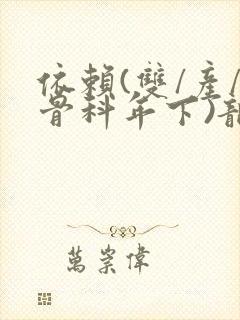 依賴(雙/產/
骨科年下)
萬崇偉